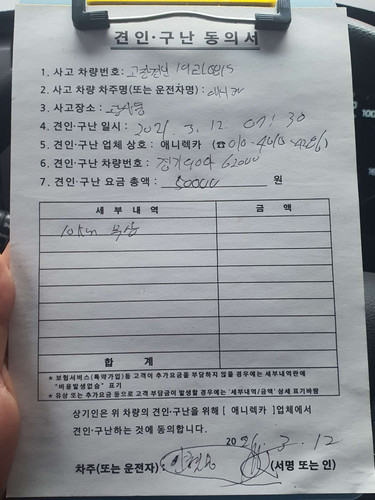 견인·구난 동의서
1. 사고 차량번호:
2. 사고 차량 차주명(또는 운전자명) : 애니카
3. 사고장소:
4. 견인·구난 일시 : 2021. 3. 12 07:30
5. 견인·구난 업체 상호 : 애니렉카 (☎010-
6. 견인·구난 차량번호: 경기
7. 견인·구난 요금 총액: 50000 원
세부내역 금액
10km
합 계
* 보험서비스(특약가입)등 고객이 추가요금을 부담하지 않을 경우에는 세부내역란에
"비용발생없음" 표기
* 유상 또는 추가요금 등으로 고객 부담금이 발생할 경우에는 '세부내역/금액' 상세 표기바람
상기인은 위 차량의 견인·구난을 위해 [ 애니렉카 ]업체에서
견인·구난하는 것에 동의합니다.
20 21. 3. 12
차주(또는 운전자): (서명 또는 인)